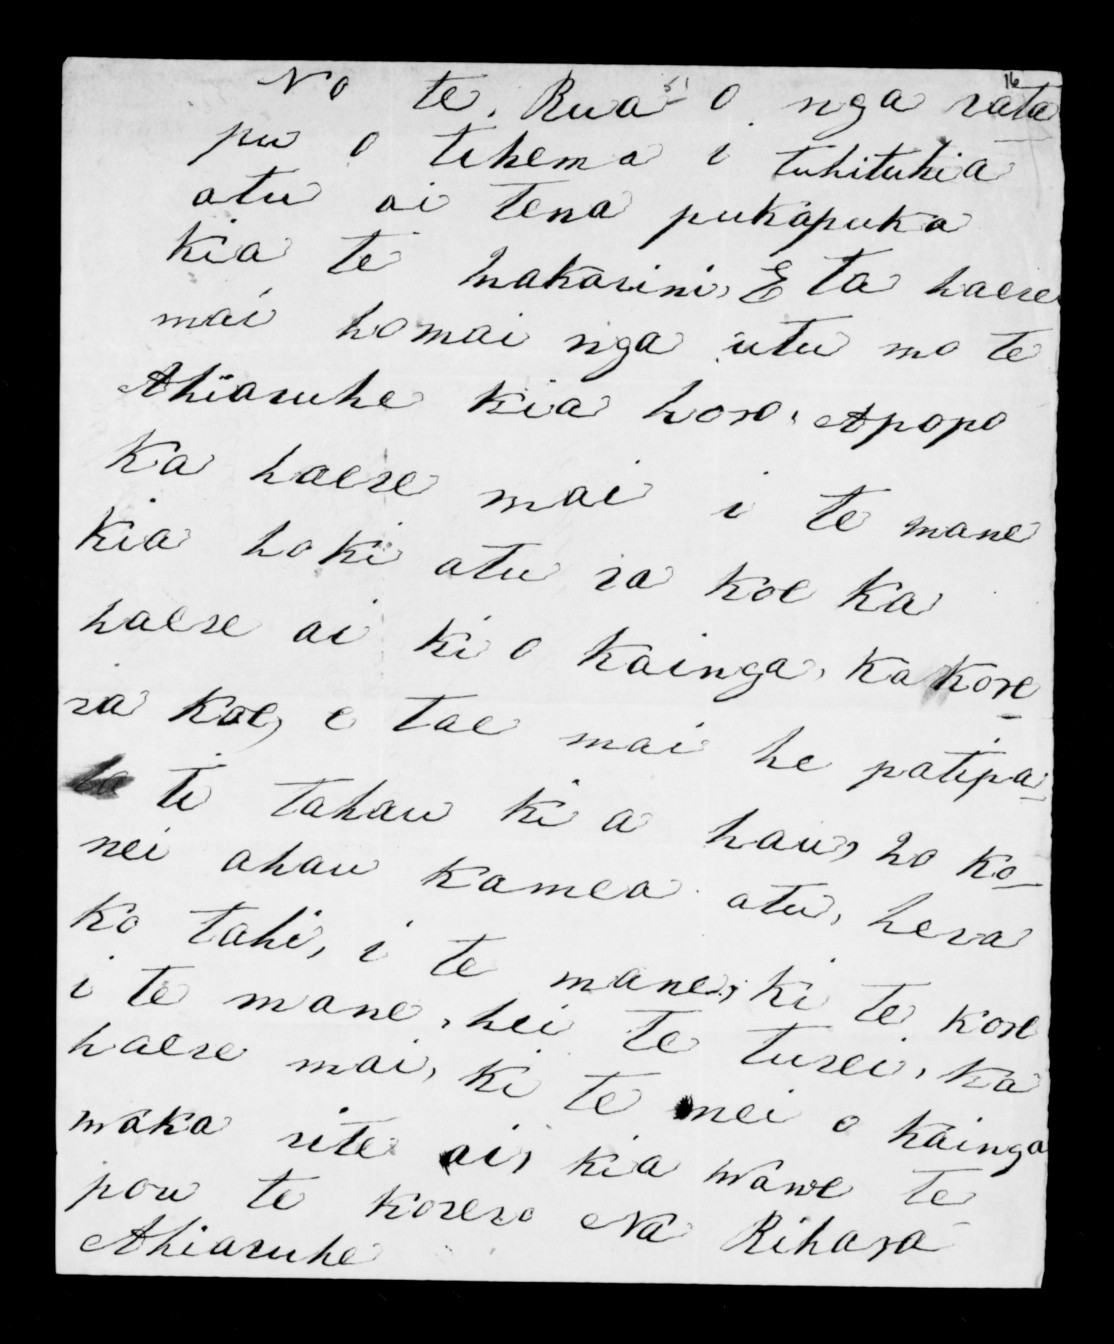 16
No te. Rua o nga rata
pu o tihema i tuhituhia
atu ai tena pukapuka
kia te Makarini, E ta haere
mai homai nga utu mo te
Ahiaruhe kia horo, Apopo
ka haere mai i te mane
kia hoki atu ra koe ka
haere ai ki o kainga, ka kore
ra koe, e tae mai he patipa-
ti tahau ki a hau, ho ko-
nei ahau kamea atu, hera
ko tahi, i te mane, ki te kore
i te mane, hei te turei, ka
haere mai, ki te mei o kainga
maka rite ai, kia wawe te
pou te korero Na Rihara
Ahiaruhe